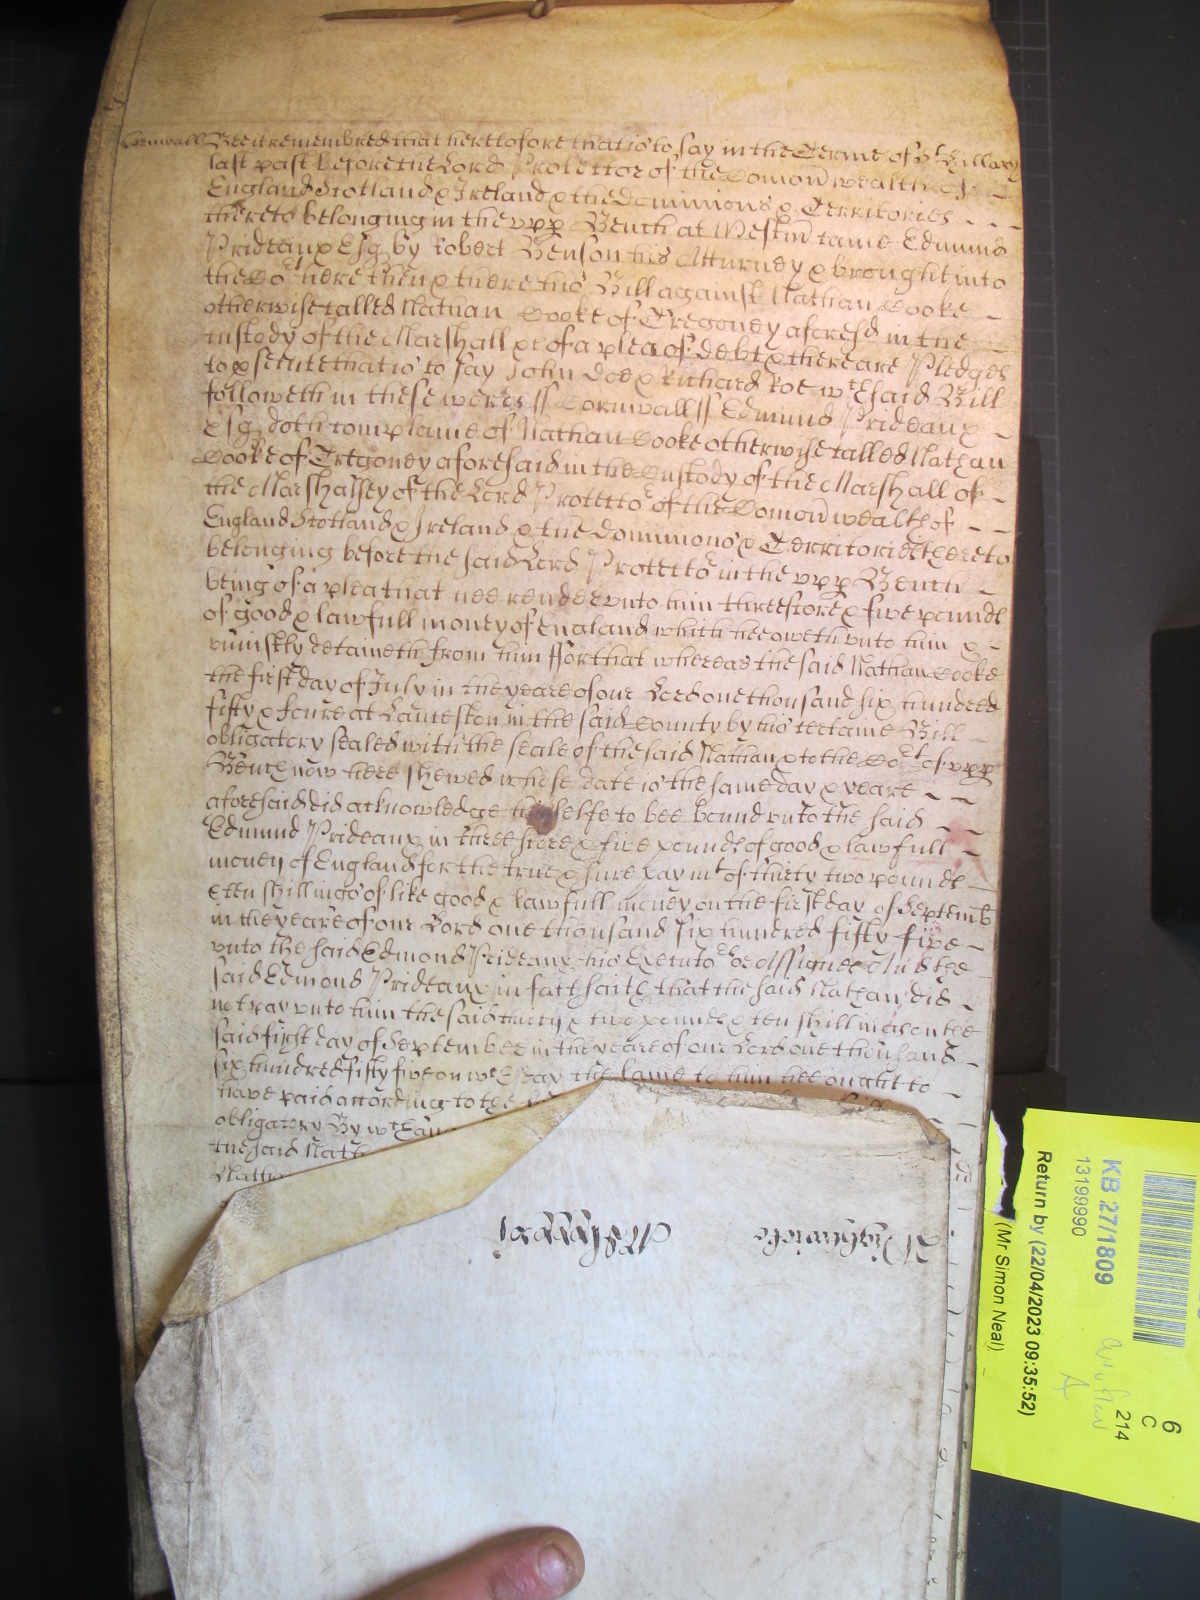 Cornwall Bee it remembred that heretofore that is to say in the Terme of St Hillary
last past before the Lord Protector of the Comon wealth of
England Scotland & Ireland & the Dominions & Territories
thereto belonging in the upp Bench at Westm came Edmund
Prideaux Esq by Robert Benson his Atturney & brought into
the Cot here then & there his Bill against Nathan Cooke
otherwise called Nathan Cooke of Tregoney aforesd in the
custody of the Marshall &c of a plea of debt & there are Pledges
to psecute that is to say John Doe & Richard Roe wch said Bill
followeth in these words ss Cornwall ss Edmund Prideaux
Esq doth complaine of Nathan Cooke otherwise called Nathan
Cooke of Tregoney aforesaid in the Custody of the Marshall of
the Marshalsey of the Lord Protector of the Comon wealth of
England Scotland & Ireland & the Dominions & Territories thereto
belonging before the said Lord Protector in the upp Bench
being of a plea that hee render unto him threescore & five pounds
of good & lawfull money of England which hee oweth unto him &
uniustly detaineth from him ffor that whereas the said Nathan Cooke
the first day of July in the yeare of our Lord one thousand six hundred
fifty & foure at Lanceston in the said County by his certaine Bill
obligatory sealed with the seale of the said Nathan & to the Cot of upp
Bench now here shewed whose date is the same day & yeare
aforesaid did acknowledge himselfe to bee bound unto the said
Edmund Prideaux in threescore & five pounds of good & lawfull
money of England for the true & sure paymt of thirty two pounds
& ten shillings of like good & lawfull money on the first day of Septemb
in the yeare of our Lord one thousand six hundred fifty five
unto the said Edmond Prideaux his Executors or Assignes And the
said Edmond Prideaux in fact saith that the said Nathan did
not pay unto him the said thirty & two pounds & ten shillings on the
said first day of September in the yeare of our Lord one thousand
six hundred fifty five on wch day the same to him hee ought to
have paid according to the
obligatory By wch
the said Nath
Nath
KB 27/1809
13199990
Return by (22/04/2023 09:35:52)
(Mr Simon Neal)
6
C
214
A